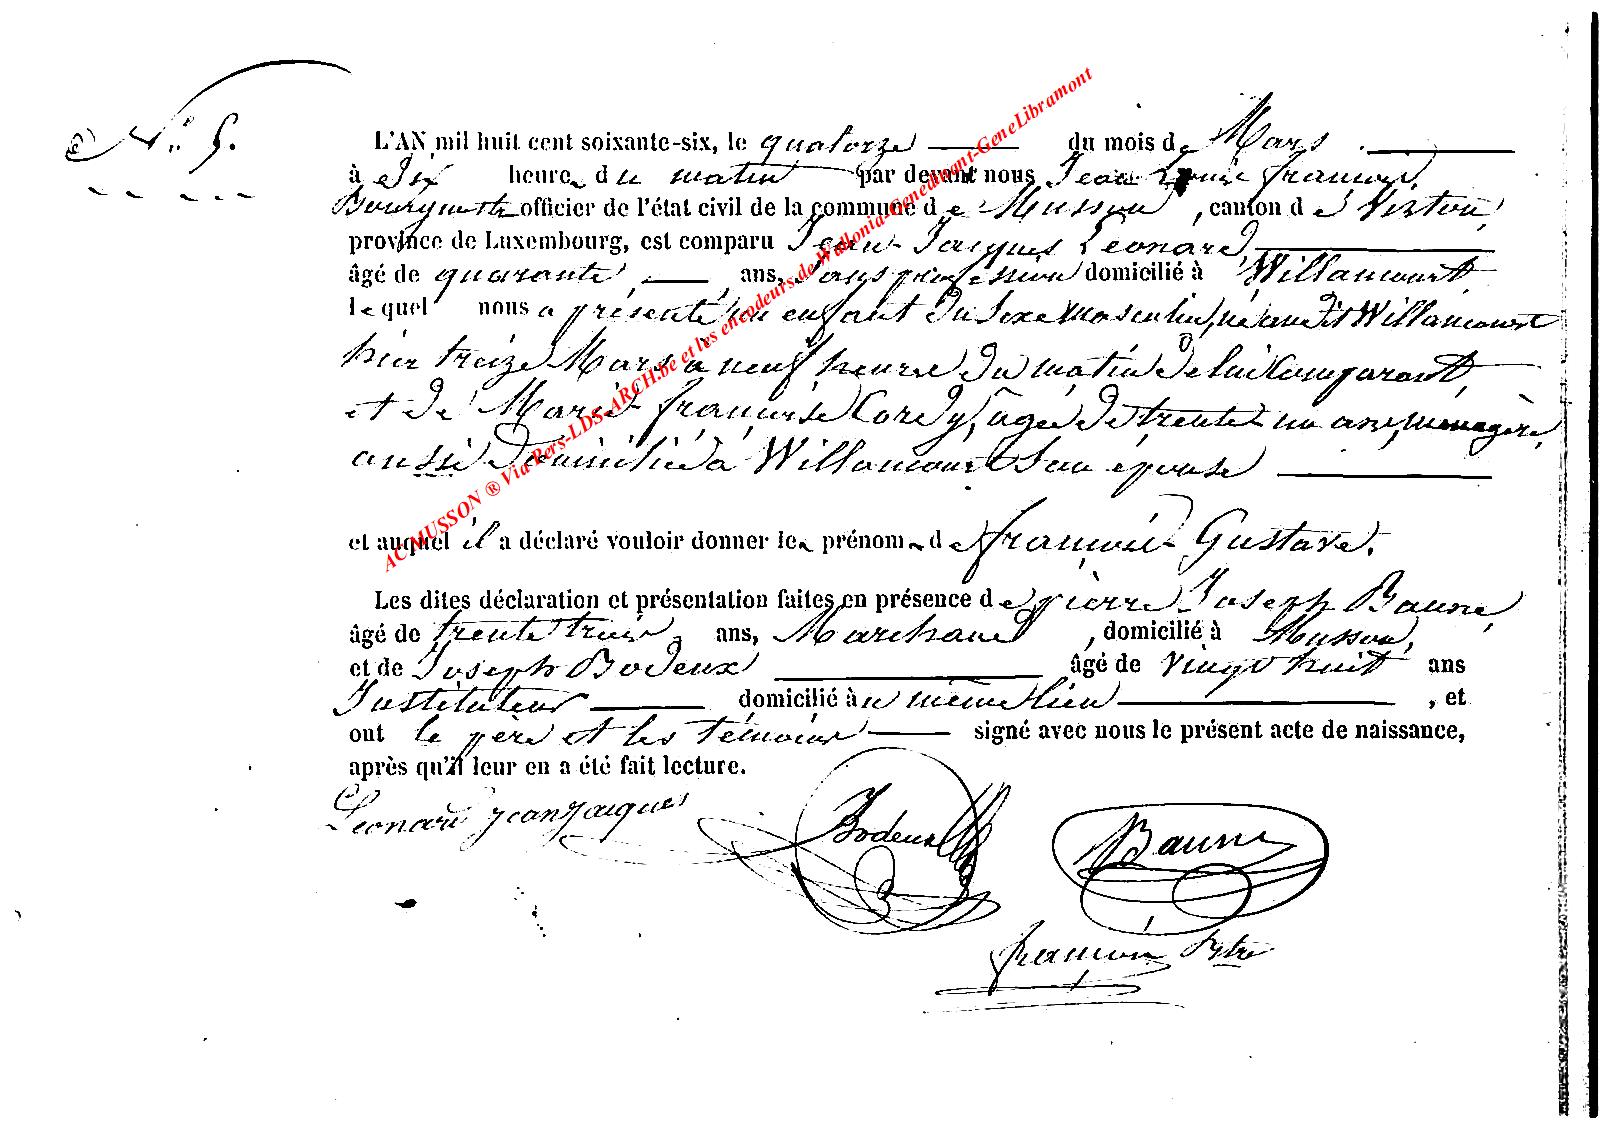 N° 5.
L'AN mil huit cent soixante-six, le quatorze du mois de Mars
à dix heures du matin par devant nous Jean Louis françois
Bourgmestre officier de l'état civil de la commune de Musson, canton de Virton,
province de Luxembourg, est comparu Jean-Jacques Leonard,
âgé de quarante ans, sans profession domicilié à Willancourt,
lequel nous a présenté un enfant du sexe masculin, né audit Willancourt
hier treize Mars à neuf heures du matin de lui Comparant,
et de Marie-françoise Cordy, agée de trente un ans, menagère,
aussi domiciliée à Willancourt son épouse
et auquel il a déclaré vouloir donner les prénoms de françois Gustave.
Les dites déclaration et présentation faites en présence de pierre Joseph Baune,
âgé de trente trois ans, Marchand, domicilié à Musson,
et de Joseph Bodeux âgé de vingt huit ans
Instituteur domicilié au même lieu, et
ont le père et les témoins signé avec nous le présent acte de naissance,
après qu'il leur en a été fait lecture.
Leonard Jean Jacques JBodeux Baune
françois
AC MUSSON ® Via Pers-LDS-ARCH.be et les encodeurs de Wallonia-Genedinant-GeneLibramont